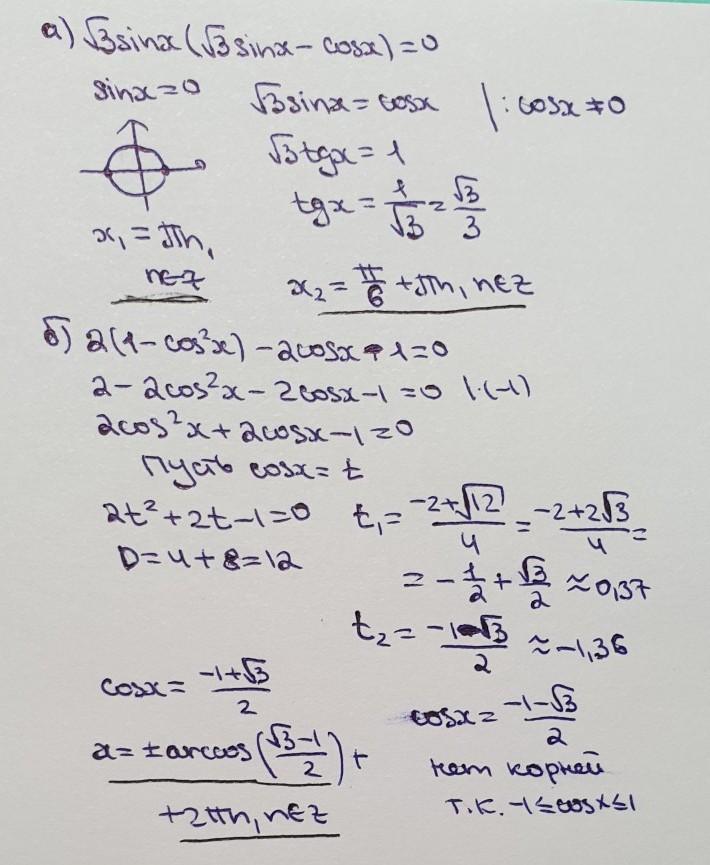 а) √3sinx(√3sinx - cosx) = 0
sinx=0 √3sinx = cosx |: cosx ≠ 0
√3tgx = 1
tgx = 1/√3 = √3/3
x₁ = πn,
n∈Z x₂ = π/6 + πn, n∈Z
б) 2(1 - cos²x) - 2cosx - 1 = 0
2 - 2cos²x - 2cosx - 1 = 0 |·(-1)
2cos²x + 2cosx - 1 = 0
Пусть cosx = t
2t² + 2t - 1 = 0 t₁ = (-2+√12)/4 = (-2+2√3)/4 =
D = 4 + 8 = 12 = -1/2 + √3/2 ≈ 0,37
t₂ = (-1-√3)/2 ≈ -1,36
cosx = (-1+√3)/2 cosx = (-1-√3)/2
x = ±arccos((√3-1)/2) + нет корней
+2πn, n∈Z т.к. -1≤cosx≤1